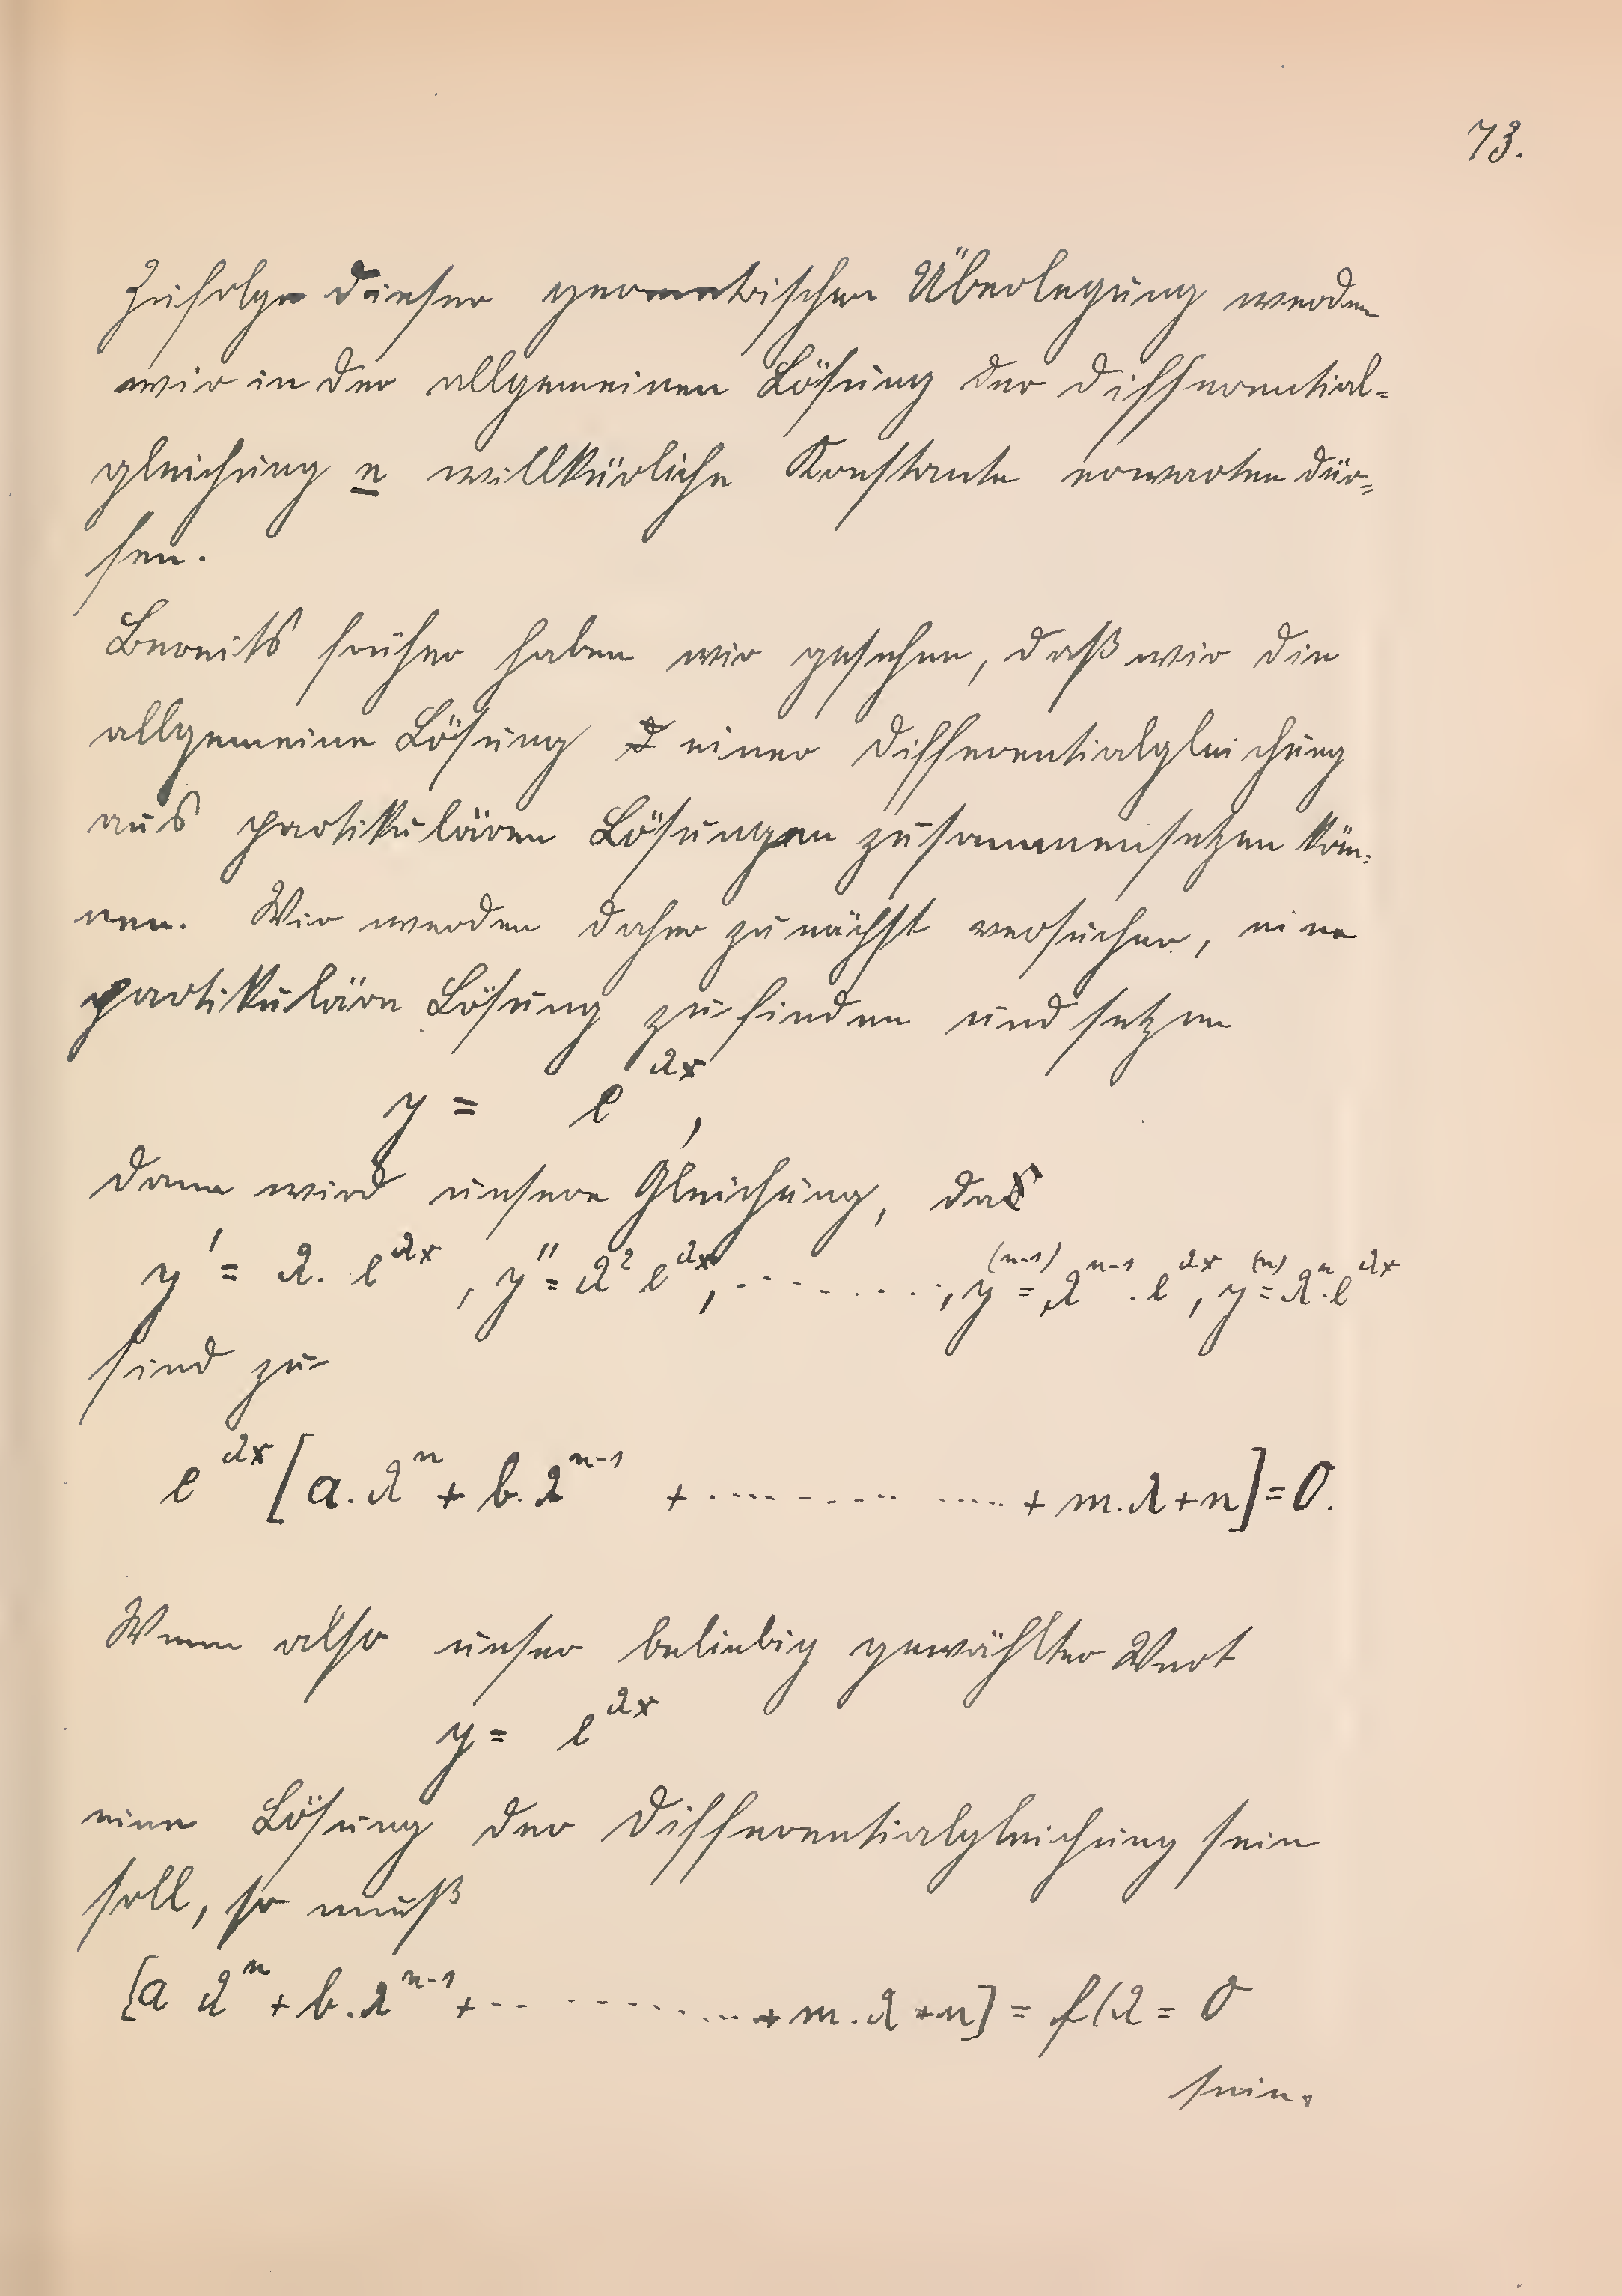 73.
Zufolge dieser geometrischen Überlegung werden
wir in der allgemeinen Lösung der Differential=
gleichung n willkürliche Konstante erwarten dür=
fen.
Bereits früher haben wir gesehen, daß wir die
allgemeine Lösung einer Differentialgleichung
aus partikulären Lösungen zusammensetzen kön=
nen. Wir werden daher zunächst versuchen, eine
partikuläre Lösung zu finden und setzen
y = e^{λx},
dann wird unsere Gleichung, da
y' = λ. e^{λx}, y'' = λ² e^{λx}, ........., y^{(n-1)} = λ^{n-1} . e^{λx}, y^{(n)} = λ^n . e^{λx}
sind zu
e^{λx} [a.λ^n + b.λ^{n-1} + ............. + m.λ+n] = 0.
Wenn also unser beliebig gewählter Wert
y = e^{λx}
eine Lösung der Differentialgleichung sein
soll, so muß
[a λ^n + b.λ^{n-1} + ............ + m.λ+n] = f(λ = 0
sein.